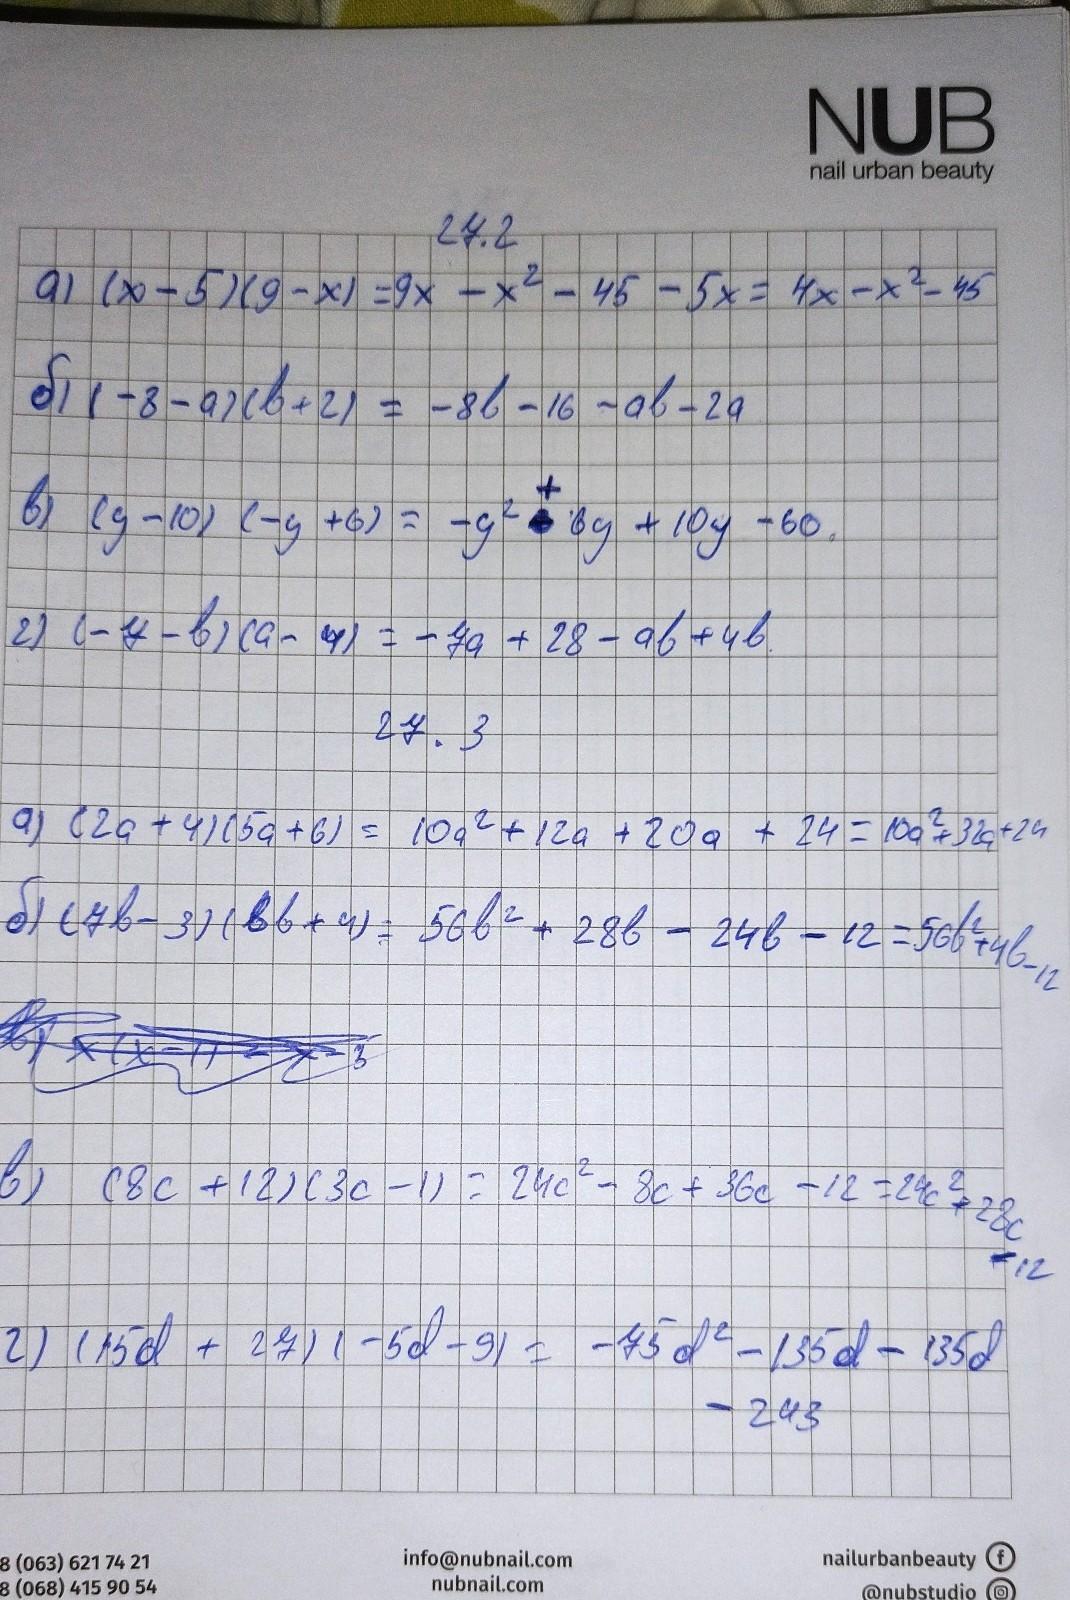 NUB
nail urban beauty
27.2
а) (x - 5)(9 - x) = 9x - x² - 45 - 5x = 4x - x² - 45
б) (-8 - a)(b + 2) = -8b - 16 - ab - 2a
в) (y - 10) (-y + 6) = -y² + 6y + 10y - 60.
г) (-7 - b)(a - 4) = -7a + 28 - ab + 4b.
27.3
а) (2a + 4)(5a + 6) = 10a² + 12a + 20a + 24 = 10a² + 32a + 24
б) (7b - 3)(8b + 4) = 56b² + 28b - 24b - 12 = 56b² + 4b - 12
в) (8c + 12)(3c - 1) = 24c² - 8c + 36c - 12 = 24c² + 28c
- 12
г) (15d + 27)(-5d - 9) = -75d² - 135d - 135d
- 243
8 (063) 621 74 21
8 (068) 415 90 54
info@nubnail.com
nubnail.com
nailurbanbeauty
@nubstudio